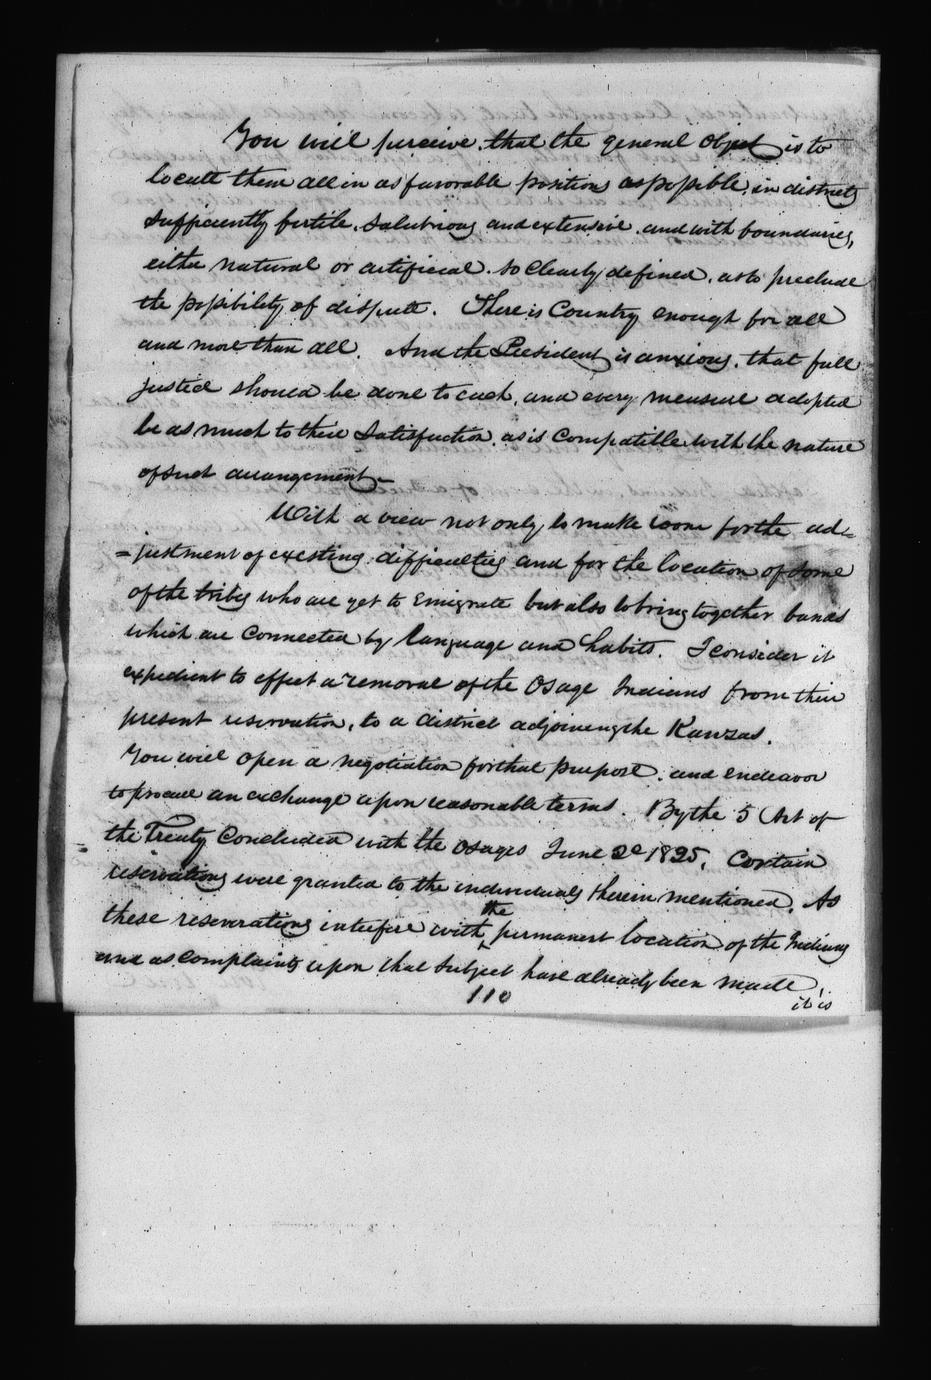 You will perceive, that the general object is to
locate them all in as favorable positions as possible, in districts
sufficiently fertile, salubrious and extensive, and with boundaries,
either natural or artificial, so clearly defined, as to preclude
the possibility of dispute. There is Country enough for all
and more than all. And the President is anxious, that full
justice should be done to each, and every measure adopted
be as much to their satisfaction, as is compatible with the nature
of such arrangement—
With a view not only, to make room for the ad=
=justment of existing difficulties and for the location of some
of the tribes who are yet to emigrate but also to bring together bands
which are connected by language and habits. I consider it
expedient to effect a removal of the Osage Indians from their
present reservation, to a district adjoining the Kanzas.
You will open a negotiation for that purpose, and endeavor
to procure an exchange upon reasonable terms. By the 5 Art of
the Treaty Concluded with the Osages June 2d 1825, Certain
reservations were granted to the individuals therein mentioned. As
these reservations interfere with the permanent location of the Indians
and as complaints upon that subject have already been made,
110
it is